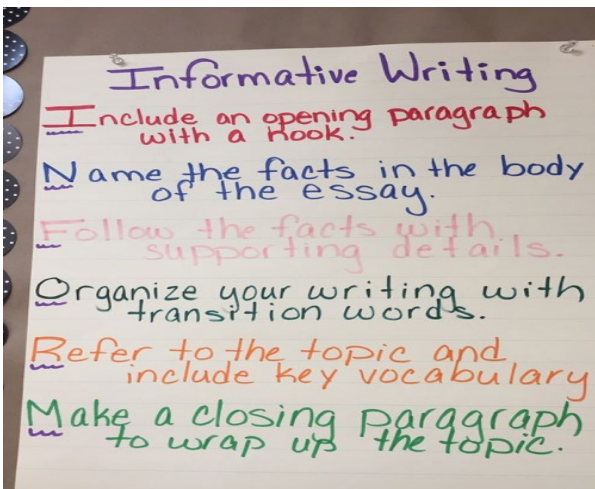 Informative Writing
Include an opening paragraph
with a hook.
Name the facts in the body
of the essay.
Follow the facts with
supporting details.
Organize your writing with
transition words.
Refer to the topic and
include key vocabulary
Make a closing paragraph
to wrap up the topic.